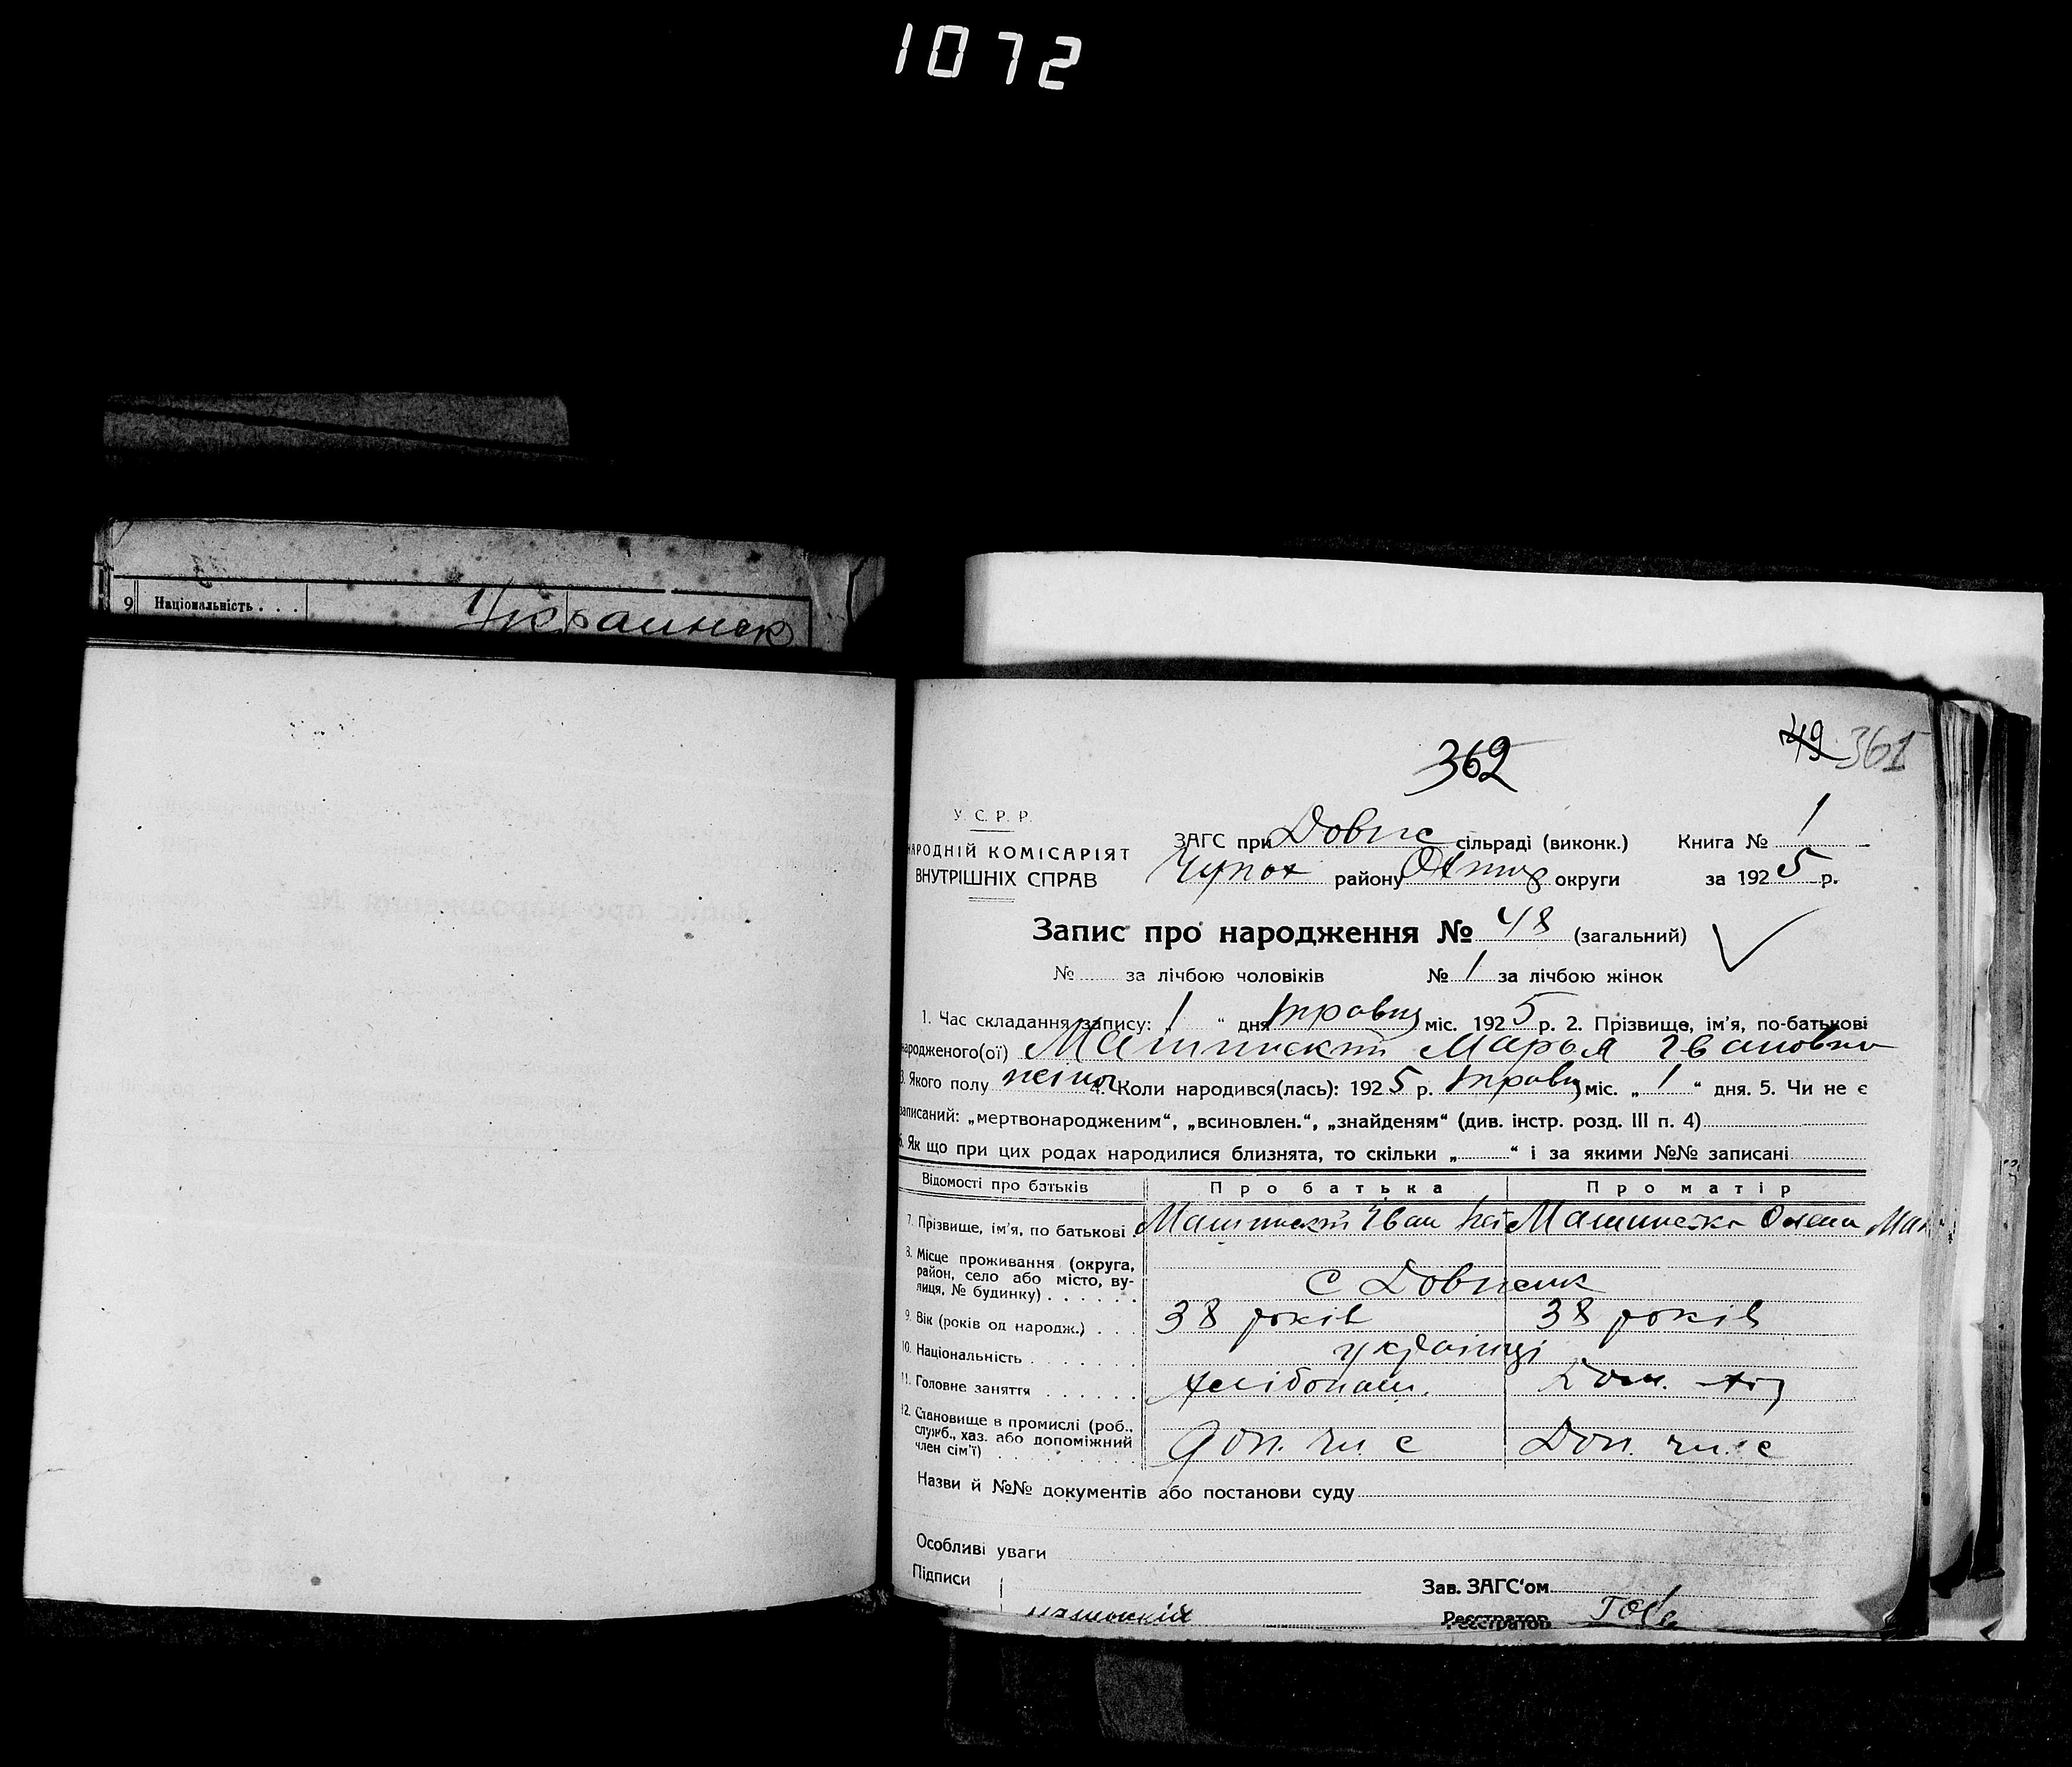 1072
9 Національність . . .
Украинск
362
49 361
У. С. Р. Р.
НАРОДНІЙ КОМІСАРІЯТ
ВНУТРІШНІХ СПРАВ
ЗАГС при Довж сільраді (виконк.) Книга № 1
Чупах району Охтир округи за 1925 р.
Запис про народження № 48 (загальний)
№ за лічбою чоловіків № 1 за лічбою жінок
1. Час складання запису: „ 1 “ дня травня міс. 1925 р. 2. Прізвище, ім'я, по-батькові
народженого(ої) Марья Івановна
3. Якого полу жіноч 4. Коли народився(лась): 1925 р. травня міс. „ 1 “ дня. 5. Чи не є
записаний: „мертвонародженим“, „всиновлен.“, „знайденям“ (див. інстр. розд. III п. 4)
6. Як що при цих родах народилися близнята, то скільки „ “ і за якими №№ записані
Відомості про батьків Про батька Про матір
7. Прізвище, ім'я, по батькові Іван Олена
8. Місце проживання (округа,
район, село або місто, ву-
лиця, № будинку) . . . . . .
с
9. Вік (років од народж.) . . . 38 років 38 років
10. Національність . . . . . . . українці
11. Головне заняття . . . . . . хлібопаш. Дом.
12. Становище в промислі (роб.,
служб., хаз. або допоміжний
член сім'ї) . . . . . . . . . Доп. чл. с Доп. чл. с
Назви й №№ документів або постанови суду
Особливі уваги
Підписи Зав. ЗАГС'ом
Реєстратор